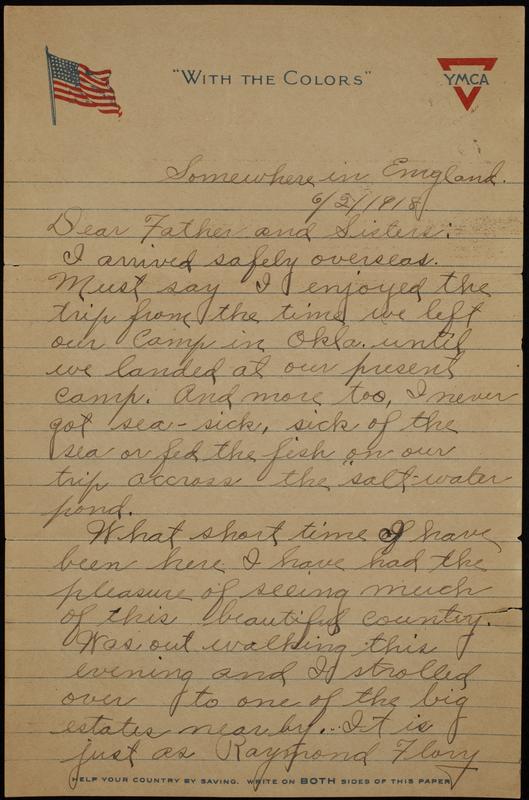 "WITH THE COLORS"
YMCA
Somewhere in England.
6/2/1918
Dear Father and Sisters:
I arrived safely overseas.
Must say I enjoyed the
trip from the time we left
our Camp in Okla. until
we landed at our present
camp. And more too, I never
got sea-sick, sick of the
sea or fed the fish on our
trip accross the "salt-water
pond.
What short time I have
been here I have had the
pleasure of seeing much
of this beautiful country.
Was out walking this
evening and I strolled
over to one of the big
estates near by... It is
just as Raymond Flory
HELP YOUR COUNTRY BY SAVING. WRITE ON BOTH SIDES OF THIS PAPER